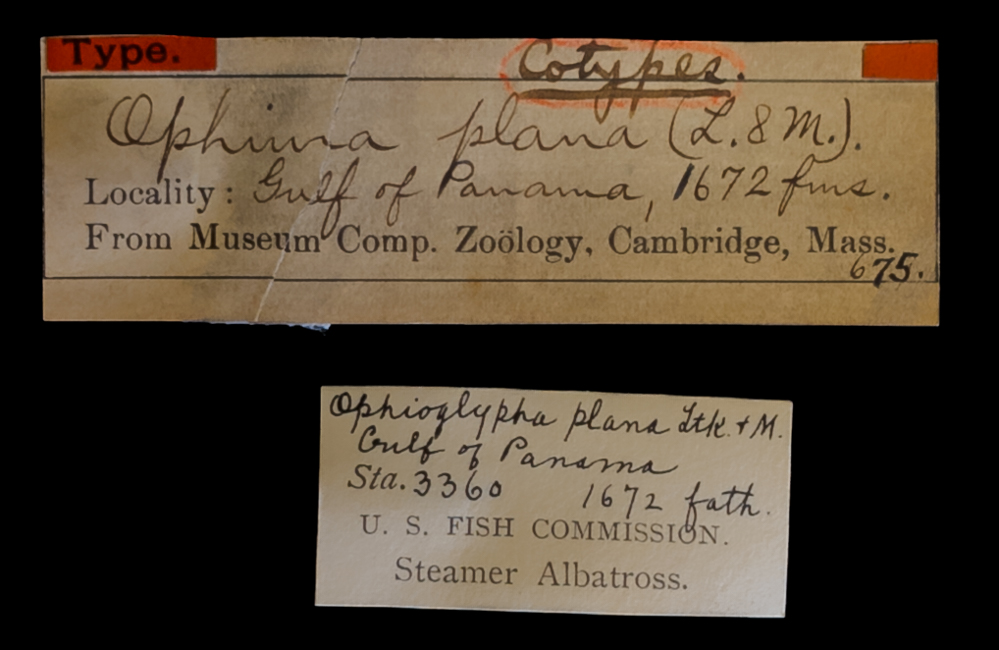 Type.
Cotypes.
Ophiura plana (L. & M.).
Locality: Gulf of Panama, 1672 fms.
From Museum Comp. Zoölogy, Cambridge, Mass.
675.
Ophioglypha plana Ltk. + M.
Gulf of Panama
Sta. 3360 1672 fath.
U. S. FISH COMMISSION.
Steamer Albatross.